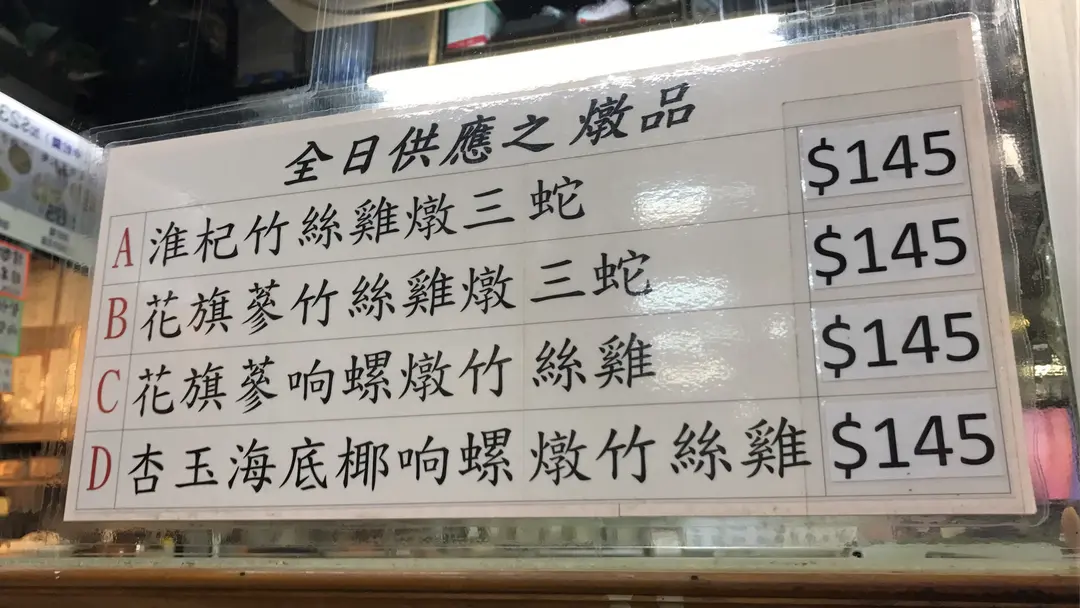 全日供應之燉品
A 淮杞竹絲雞燉三蛇 $145
B 花旗蔘竹絲雞燉三蛇 $145
C 花旗蔘响螺燉竹絲雞 $145
D 杏玉海底椰响螺燉竹絲雞 $145